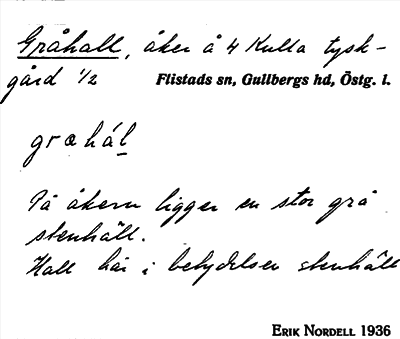 Gråhall, åker å 4 Kulla tysk-
gård 1/2 Flistads sn, Gullbergs hd, Östg. l.
græhál
På åkern ligger en stor grå
stenhäll.
Hall här i betydelsen stenhäll
ERIK NORDELL 1936